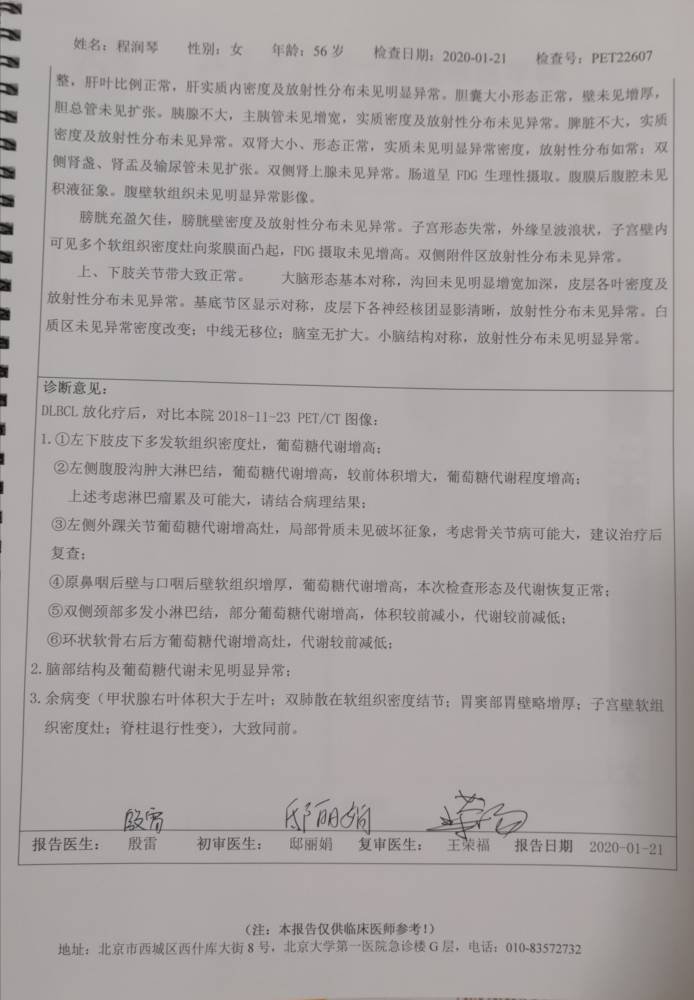 姓名：程润琴 性别：女 年龄：56 岁 检查日期：2020-01-21 检查号：PET22607
整，肝叶比例正常，肝实质内密度及放射性分布未见明显异常。胆囊大小形态正常，壁未见增厚，
胆总管未见扩张。胰腺不大，主胰管未见增宽，实质密度及放射性分布未见异常。脾脏不大，实质
密度及放射性分布未见异常。双肾大小、形态正常，实质未见明显异常密度，放射性分布如常；双
侧肾盏、肾盂及输尿管未见扩张。双侧肾上腺未见异常。肠道呈 FDG 生理性摄取。腹膜后腹腔未见
积液征象。腹壁软组织未见明显异常影像。
膀胱充盈欠佳，膀胱壁密度及放射性分布未见异常。子宫形态失常，外缘呈波浪状，子宫壁内
可见多个软组织密度灶向浆膜面凸起，FDG 摄取未见增高。双侧附件区放射性分布未见异常。
上、下肢关节带大致正常。 大脑形态基本对称，沟回未见明显增宽加深，皮层各叶密度及
放射性分布未见异常。基底节区显示对称，皮层下各神经核团显影清晰，放射性分布未见异常。白
质区未见异常密度改变；中线无移位；脑室无扩大。小脑结构对称，放射性分布未见明显异常。
诊断意见：
DLBCL 放化疗后，对比本院 2018-11-23 PET/CT 图像：
1.①左下肢皮下多发软组织密度灶，葡萄糖代谢增高；
②左侧腹股沟肿大淋巴结，葡萄糖代谢增高，较前体积增大，葡萄糖代谢程度增高；
上述考虑淋巴瘤累及可能大，请结合病理结果；
③左侧外踝关节葡萄糖代谢增高灶，局部骨质未见破坏征象，考虑骨关节病可能大，建议治疗后
复查；
④原鼻咽后壁与口咽后壁软组织增厚，葡萄糖代谢增高，本次检查形态及代谢恢复正常；
⑤双侧颈部多发小淋巴结，部分葡萄糖代谢增高，体积较前减小，代谢较前减低；
⑥环状软骨右后方葡萄糖代谢增高灶，代谢较前减低；
2.脑部结构及葡萄糖代谢未见明显异常；
3.余病变（甲状腺右叶体积大于左叶；双肺散在软组织密度结节；胃窦部胃壁略增厚；子宫壁软组
织密度灶；脊柱退行性变），大致同前。
殷雷 邸丽娟
报告医生： 殷雷 初审医生： 邸丽娟 复审医生： 王荣福 报告日期 2020-01-21
（注：本报告仅供临床医师参考！）
地址：北京市西城区西什库大街 8 号，北京大学第一医院急诊楼 G 层，电话：010-83572732